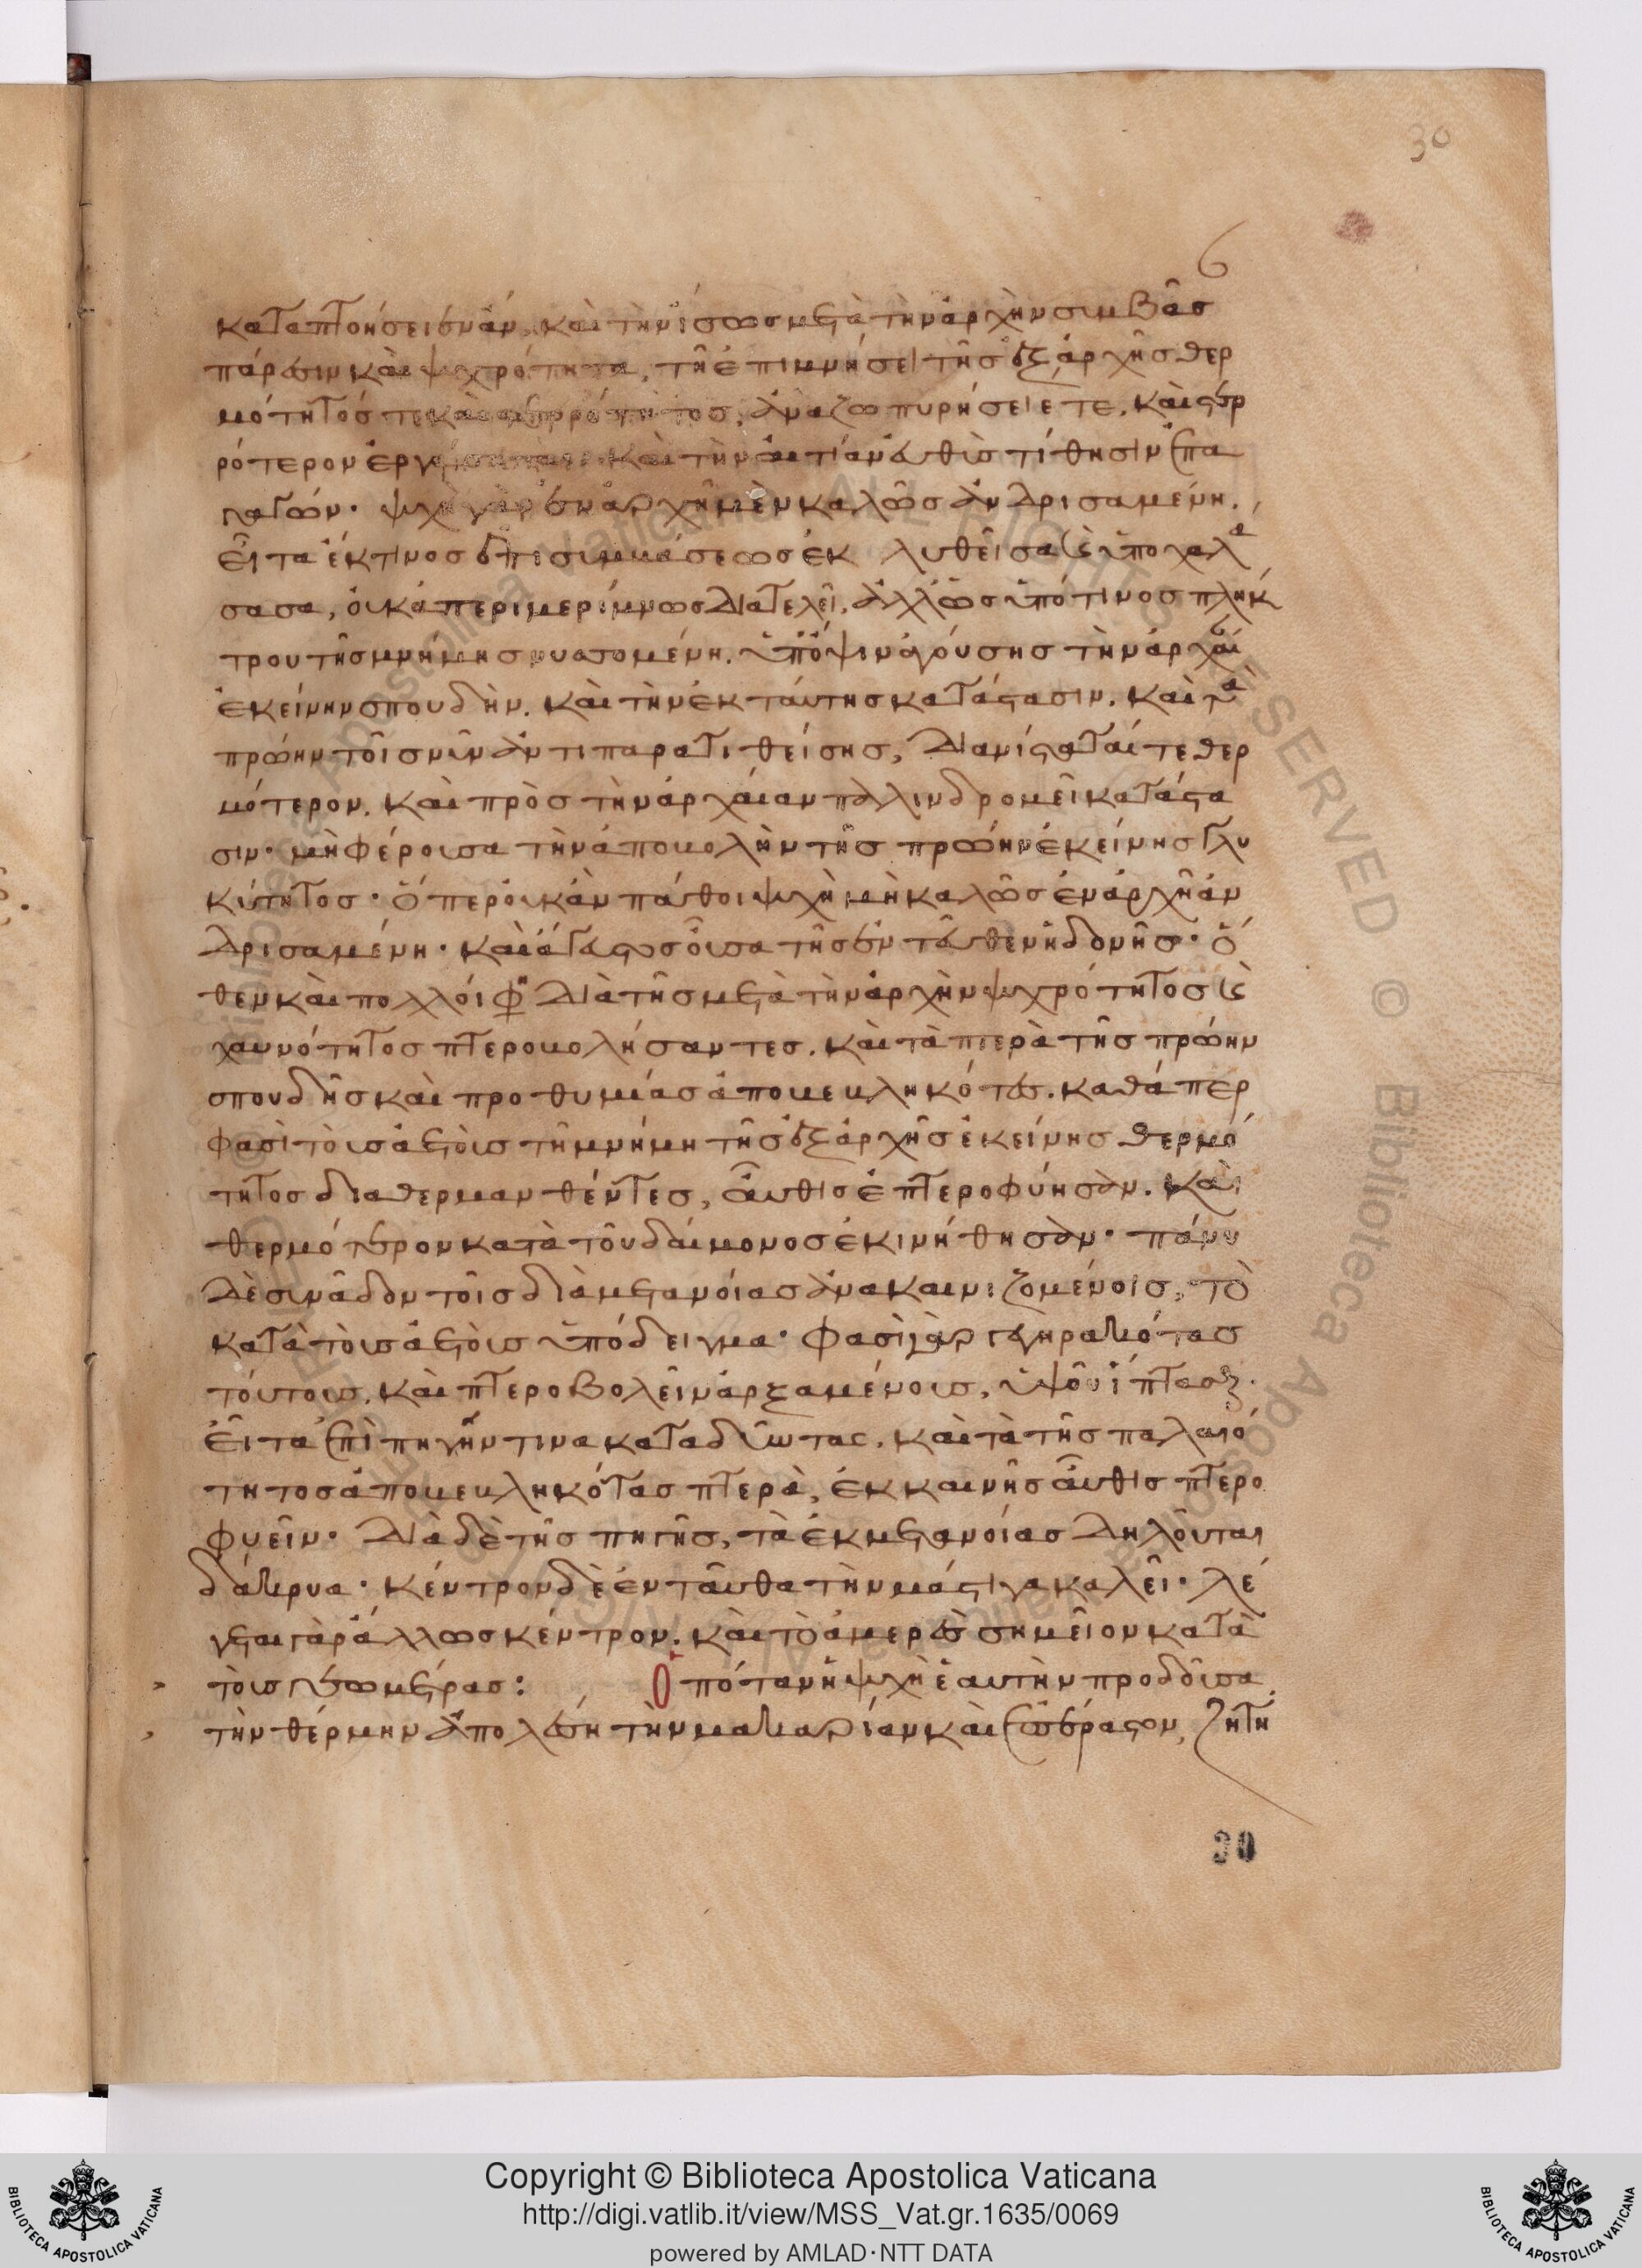 30
καταπτοήσειεν ἄν, καὶ τὴν ἴσως μετὰ τὴν ἀρχὴν συμβᾶσ
πάρεσιν καὶ ψυχρότητα, τῇ ἐπιμνήσει τῆς ἐξ ἀρχῆς θερ
μότητός τε καὶ ἀναζωπυρήσειέ τε, καὶ εὐρ
ρότερον καὶ τὴν αἰτίαν εὐθὺς τίθησιν
ψυχὴ γὰρ ἐν ἀρχῇ μὲν καλῶς ἀνδρισαμένη.
εἶτα ἔκ τινος ἐπισυμβάσεως ἐκλυθεῖσα καὶ ὑποχαλά
σασα, οὐκ ἀπεριμερίμνως διατελεῖ, ἀλλ' ὡς ὑπό τινος πλήκ
τρου τῆς μνήμης νυσσομένη. ὑπ' ὄψιν ἀγούσης τὴν ἀρχαί
ἐκείνην σπουδήν. καὶ τὴν ἐκ ταύτης κατάστασιν. καὶ τὰ
πρώην τοῖς νῦν ἀντιπαρατιθείσης, διανίσταταί τε θερ
μότερον. καὶ πρὸς τὴν ἀρχαίαν παλινδρομεῖ κατάστα
σιν· μὴ φέρουσα τὴν ἀποβολὴν τῆς πρώην ἐκείνης γλυ
κύτητος· ὅπερ οὐκ ἂν πάθοι ψυχὴ μὴ καλῶς ἐν ἀρχῇ ἀν
δρισαμένη· καὶ ἄγευστος οὖσα τῆς ἐντεῦθεν ἡδονῆς· ὅ
θεν καὶ πολλοί φη διὰ τῆς μετὰ τὴν ἀρχὴν ψυχρότητος καὶ
χαυνότητος πτεροβολήσαντες. καὶ τὰ πτερὰ τῆς πρώην
σπουδῆς καὶ προθυμίας ἀποβεβληκότες. καθάπερ
φασὶ τοὺς ἀετοὺς τῇ μνήμῃ τῆς ἐξ ἀρχῆς ἐκείνης θερμό
τητος διαθερμανθέντες, αὖθις ἐπτεροφύησαν. καὶ
θερμότερον κατὰ τοῦ δαίμονος ἐκινήθησαν· πάνυ
δὲ συνᾶδον τοῖς διὰ μετανοίας ἀνακαινιζομένοις, τὸ
κατὰ τοὺς ἀετοὺς ὑπόδειγμα· φασὶ γὰρ γεγηρακότας
τούτους. καὶ πτεροβολεῖν ἀρξαμένους, ὑψοῦ ἵπτασθαι.
εἶτα ἐπὶ πηγήν τινα καταδύντας. καὶ τὰ τῆς παλαιό
τητος ἀποβεβληκότας πτερὰ, ἐκ καινῆς αὖθις πτερο
φυεῖν· διὰ δὲ τῆς πηγῆς, τὰ ἐκ μετανοίας δηλοῦται
δάκρυα· κέντρον δὲ ἐνταῦθα τὴν μάστιγα καλεῖ· λέ
γεται γὰρ ἄλλως κέντρον. καὶ τὸ ἀμερὲς σημεῖον κατὰ
τοὺς γεωμέτρας: Ὁπόταν ἡ ψυχὴ ἑαυτὴν προδοῦσα
τὴν θέρμην ἀπολέσῃ τὴν μακαρίαν καὶ ἐπέραστον, ζητη
30
Copyright © Biblioteca Apostolica Vaticana
http://digi.vatlib.it/view/MSS_Vat.gr.1635/0069
powered by AMLAD·NTT DATA
BIBLIOTECA APOSTOLICA VATICANA
BIBLIOTECA APOSTOLICA VATICANA